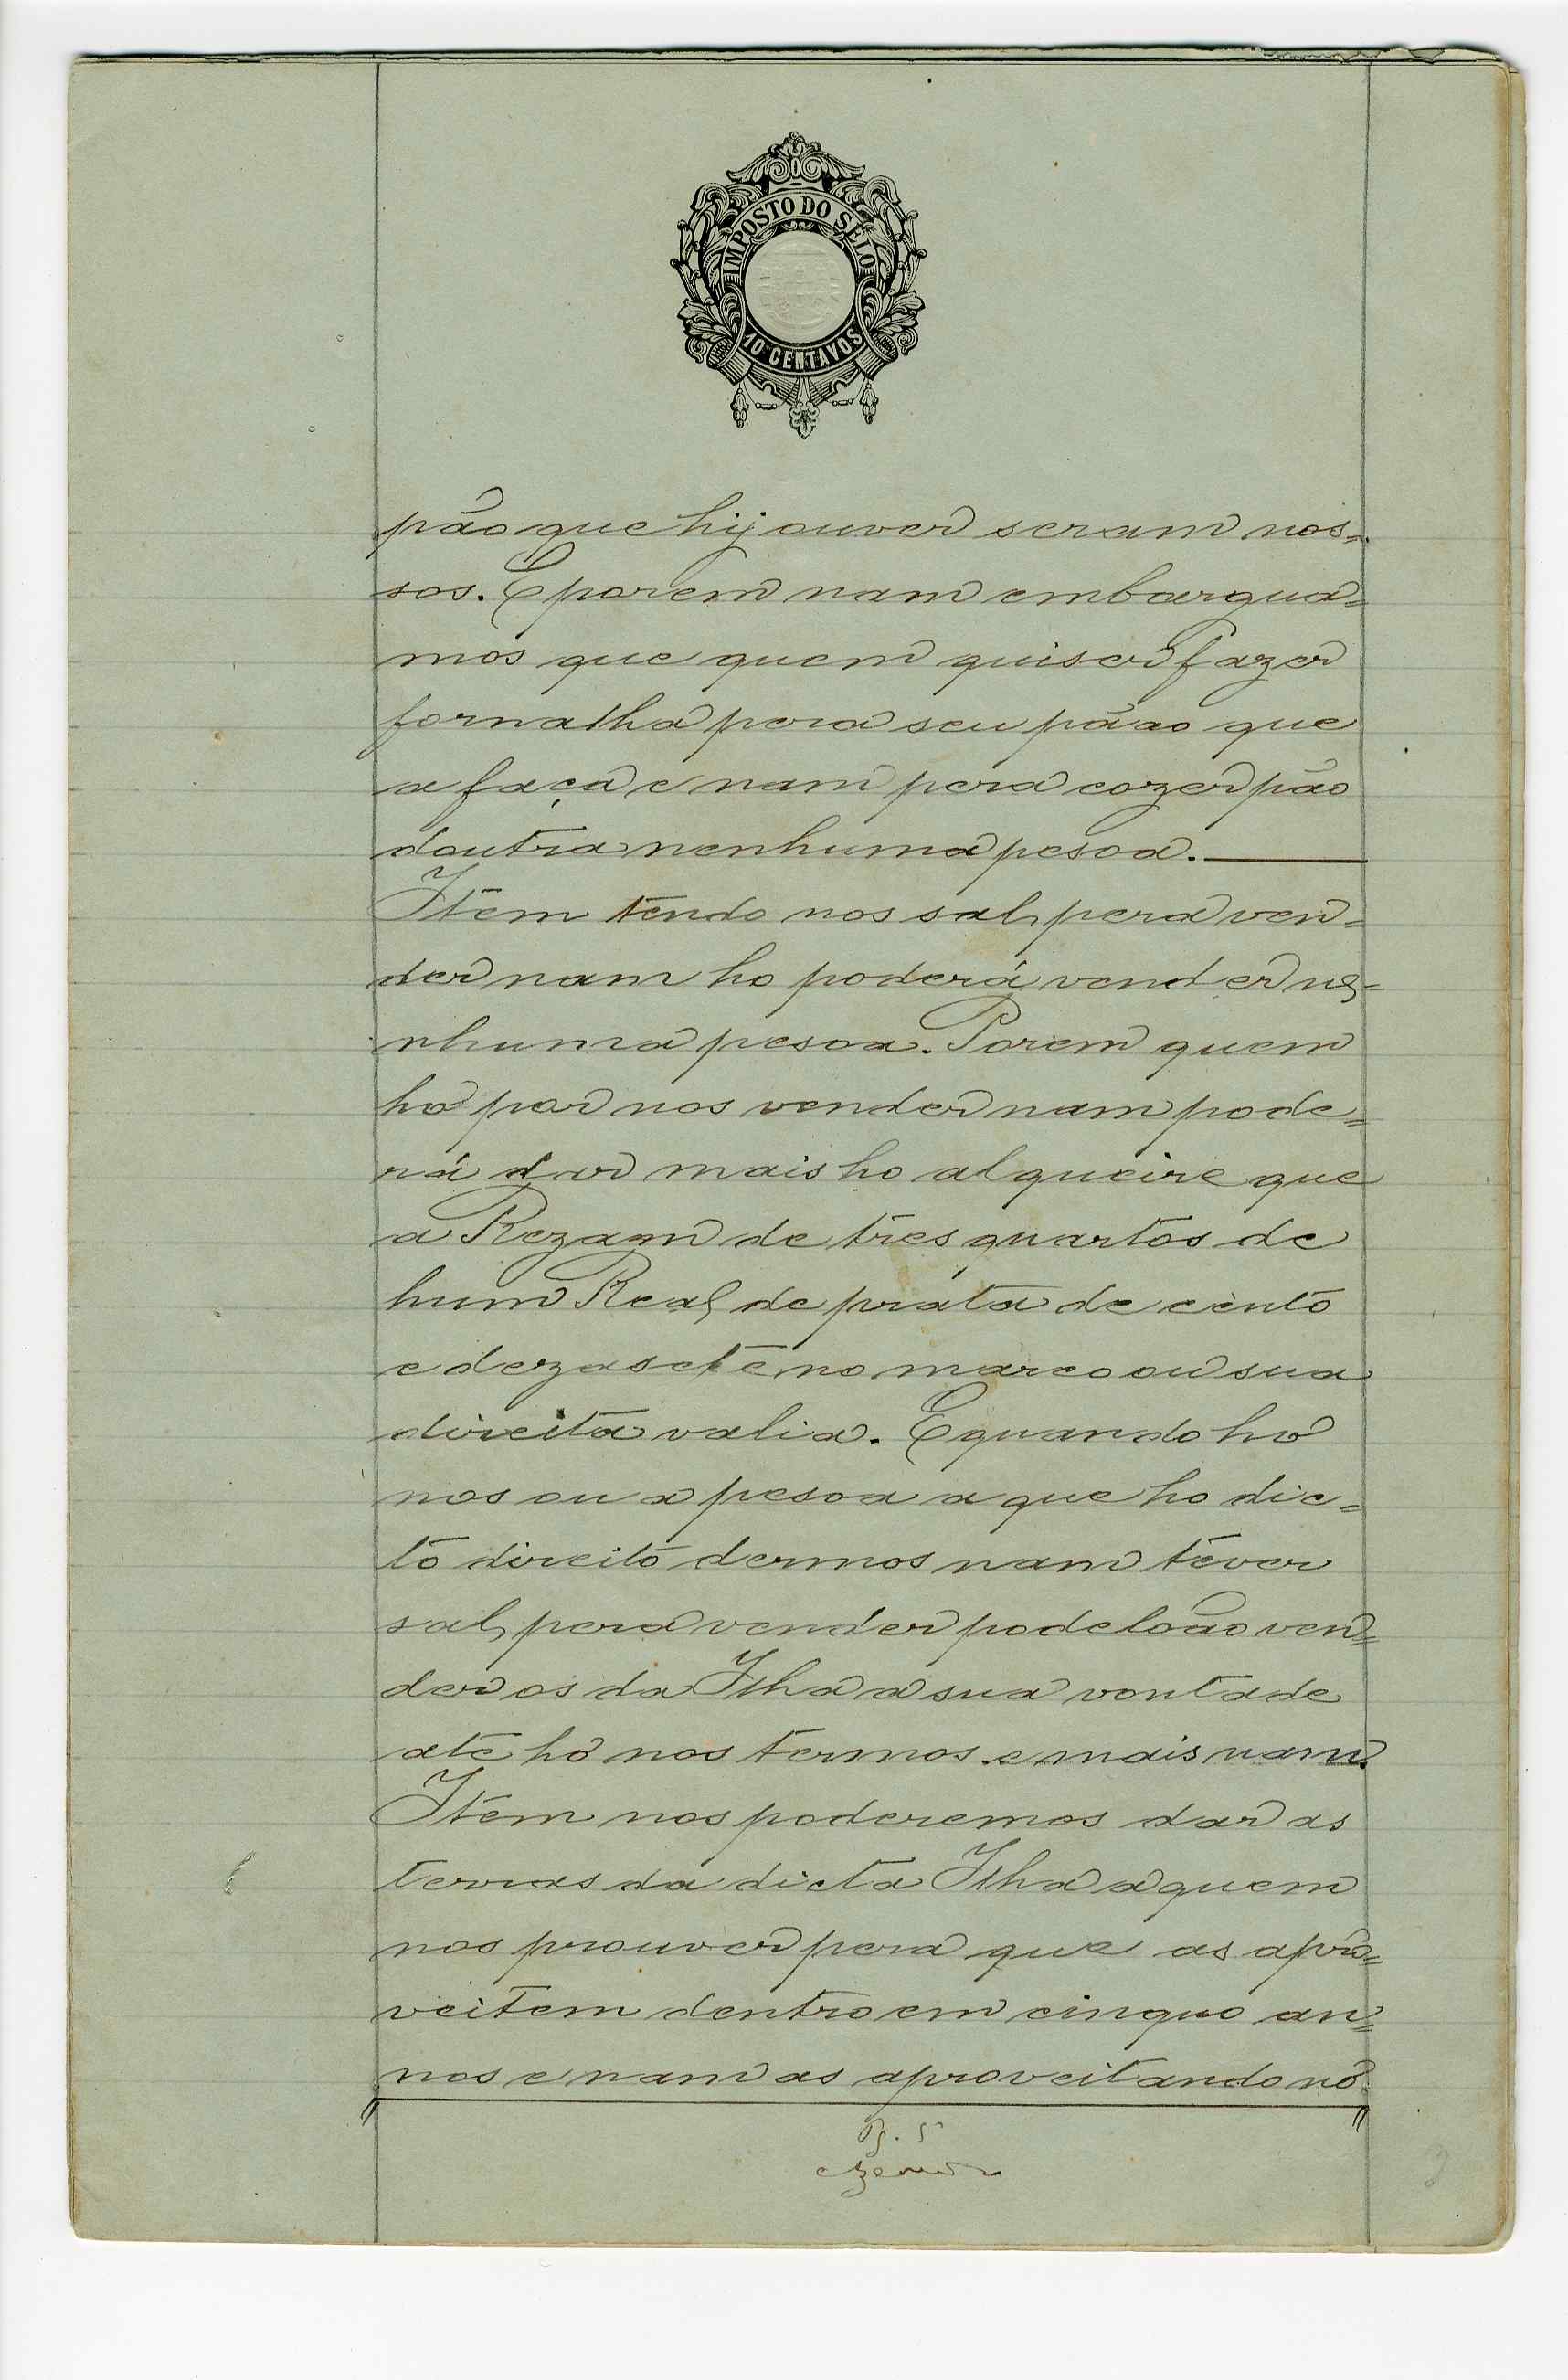 IMPOSTO DO SÊLO
10 CENTAVOS
pão que hij ouver seram nos=
sos. E porem nam embargua=
mos que quem quiser fazer
fornalha pera seu pãao que
a faça e nam pera cozer pão
doutra nenhuma pesoa.
Item tendo nos sal pera ven=
der nam ho poderá vender ne=
nhuma pesoa. Porem quem
ho por nos vender nam pode=
rá dar mais ho alqueire que
a Rezam de tres quartos de
hum Real de prata de cento
e dezasete no marco ou sua
direita valia. E quando ho
nos ou a pesoa a que ho dic=
to direito dermos nam tever
sal pera vender podeloão ven=
der os da Ilha a sua vontade
ate hô nos termos e mais nam.
Item nos poderemos dar as
terras da dicta Ilha a quem
nos prouver pera que as apro=
veitem dentro em cinquo an=
nos e nam as aproveitando no